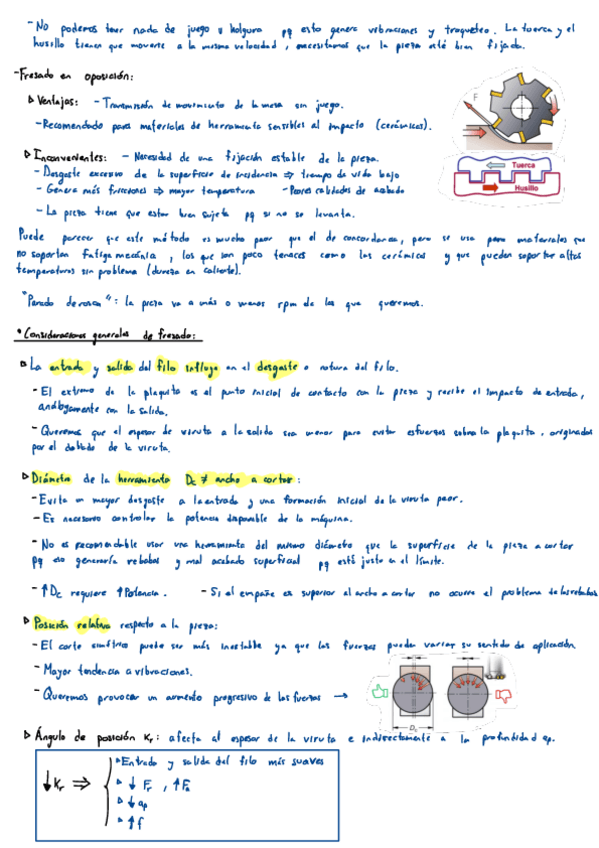 - No podemos tener nada de juego u holgura pq esto genera vibraciones y traqueteo. La tuerca y el
husillo tienen que moverse a la misma velocidad, necesitamos que la pieza esté bien fijada.
- Fresado en oposición:
▷ Ventajas: - Transmisión de movimiento de la mesa sin juego.
- Recomendado para materiales de herramienta sensibles al impacto (cerámicos).
▷ Inconvenientes: - Necesidad de una fijación estable de la pieza.
- Desgaste excesivo de la superficie de incidencia ⇒ tiempo de vida bajo
- Genera más fricciones ⇒ mayor temperatura - Peores calidades de acabado
- La pieza tiene que estar bien sujeta pq si no se levanta.
F
Tuerca
Husillo
Puede parecer que este método es mucho peor que el de concordancia, pero se usa para materiales que
no soportan fatiga mecánica, los que son poco tenaces como los cerámicos y que pueden soportar altas
temperaturas sin problema (dureza en caliente).
: la pieza va a más o menos rpm de las que queremos.
• Consideraciones generales de fresado:
▷ La entrada y salida del filo influye en el desgaste o rotura del filo.
- El extremo de la plaquita es el punto inicial de contacto con la pieza y recibe el impacto de entrada,
análogamente con la salida.
- Queremos que el espesor de viruta a la salida sea menor para evitar esfuerzos sobre la plaquita, originados
por el doblado de la viruta.
▷ Diámetro de la herramienta Dc ≠ ancho a cortar:
- Evita un mayor desgaste a la entrada y una formación inicial de la viruta peor.
- Es necesario controlar la potencia disponible de la máquina.
- No es recomendable usar una herramienta del mismo diámetro que la superficie de la pieza a cortar
pq eso generaría rebabas y mal acabado superficial pq está justo en el límite.
- ↑Dc requiere ↑Potencia. - Si el empañe es superior al ancho a cortar no ocurre el problema de las rebabas
▷ Posición relativa respecto a la pieza:
- El corte simétrico puede ser más inestable ya que las fuerzas pueden variar su sentido de aplicación.
- Mayor tendencia a vibraciones.
- Queremos provocar un aumento progresivo de las fuerzas →
Dc
▷ Ángulo de posición Kr: afecta al espesor de la viruta e indirectamente a la profundidad ap.
↓Kr ⇒
▷ Entrada y salida del filo más suaves
▷ ↓ Fr, ↑Fa
▷ ↓ap
▷ ↑f